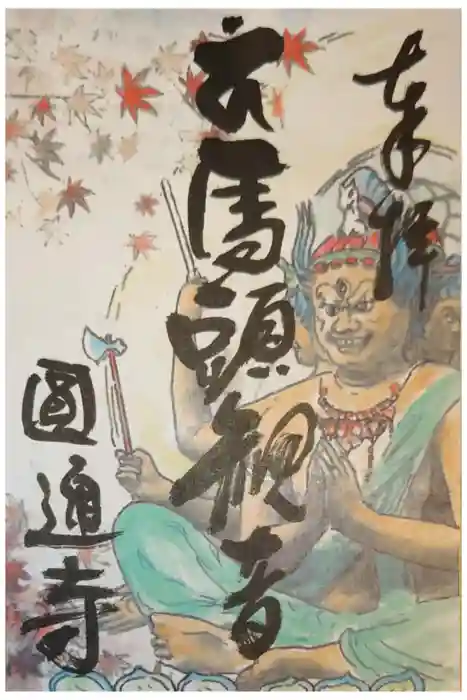 奉拝
馬頭観音
圓通寺